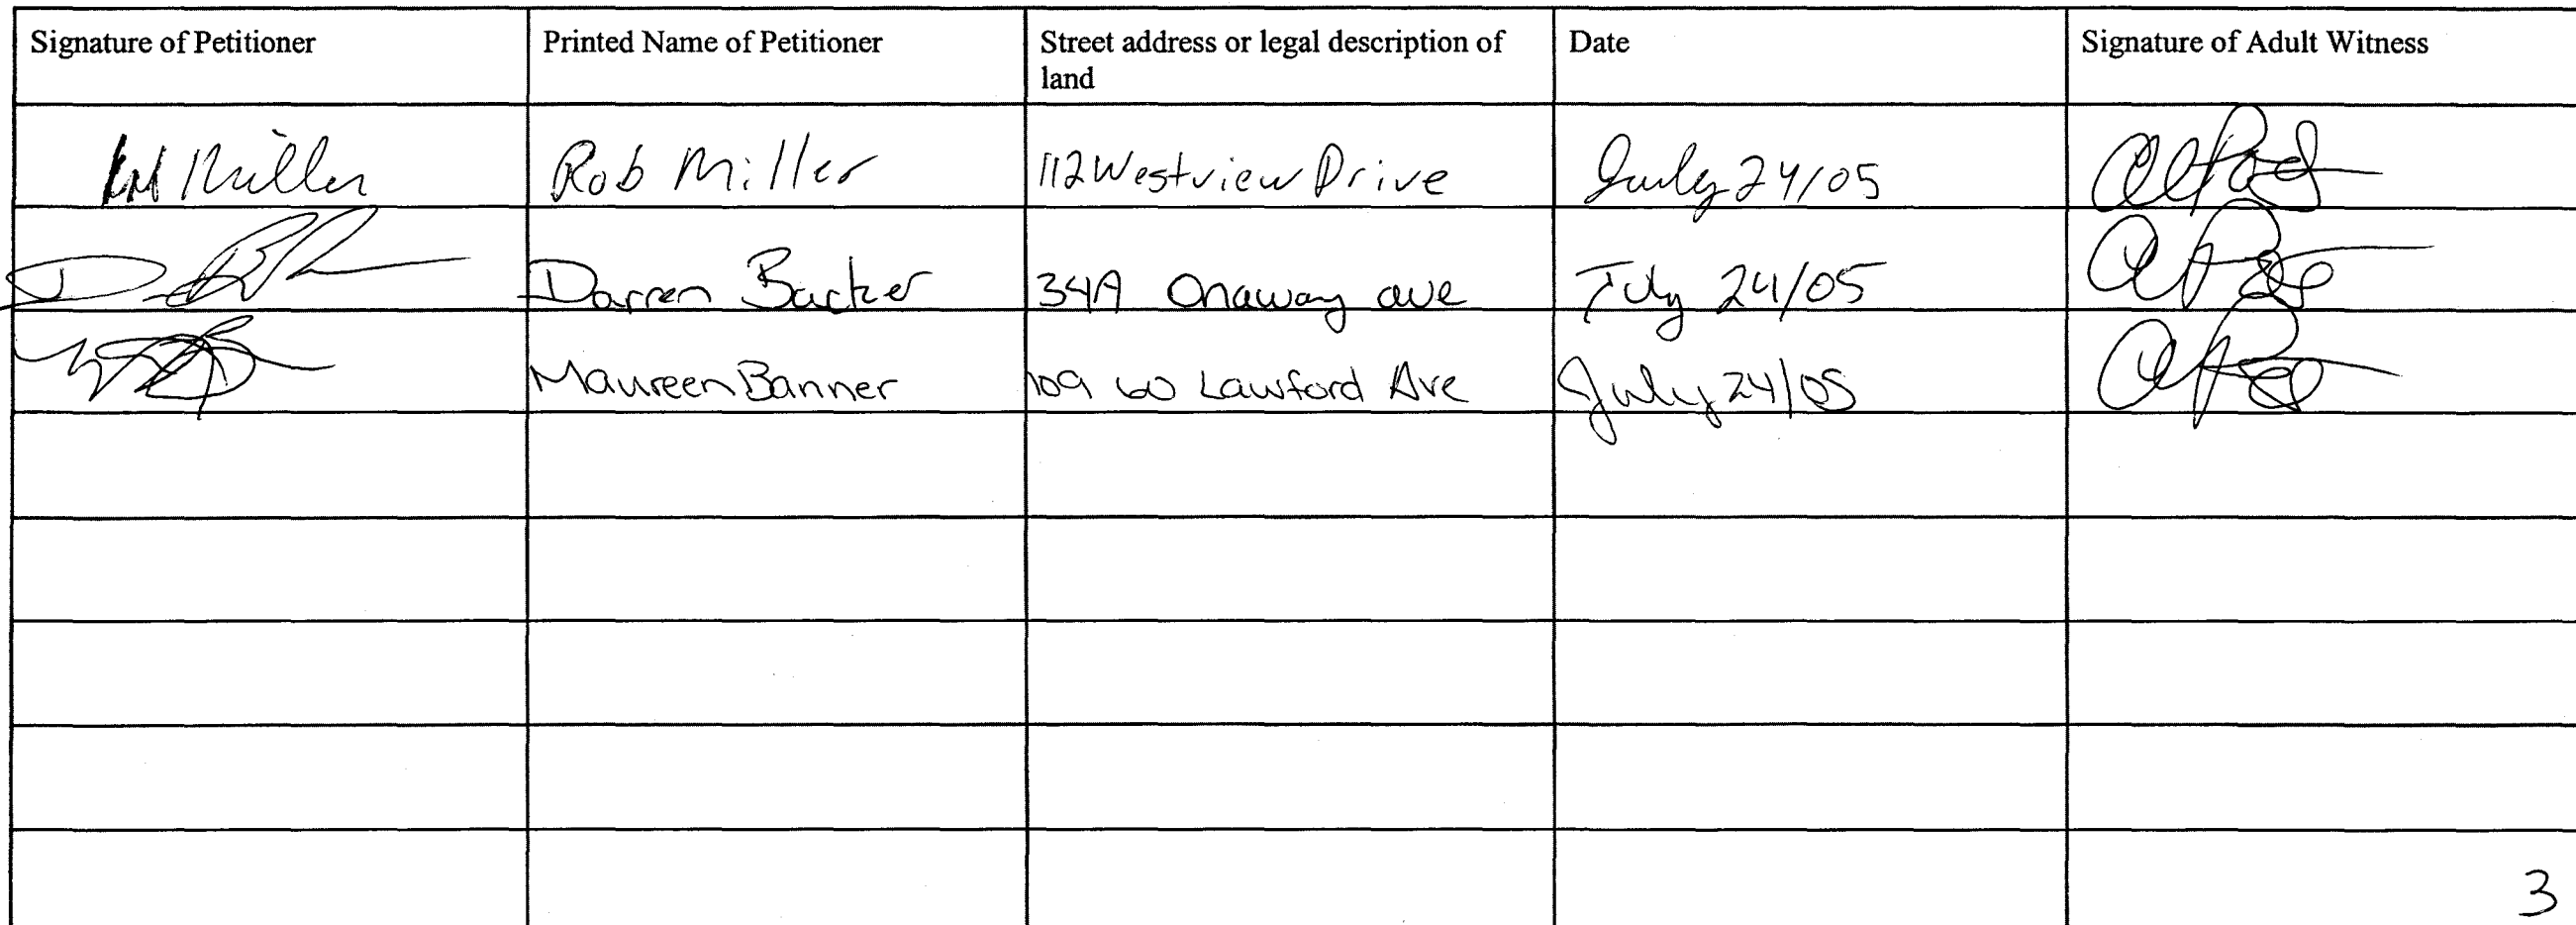 Signature of Petitioner
Printed Name of Petitioner
Street address or legal description of
land
Date
Signature of Adult Witness
Miller
Rob Miller
112 Westview Drive
July 24/05
Darren
34A Onaway ave
July 24/05
Maureen Banner
109 60 Lawford Ave
July 24/05
3